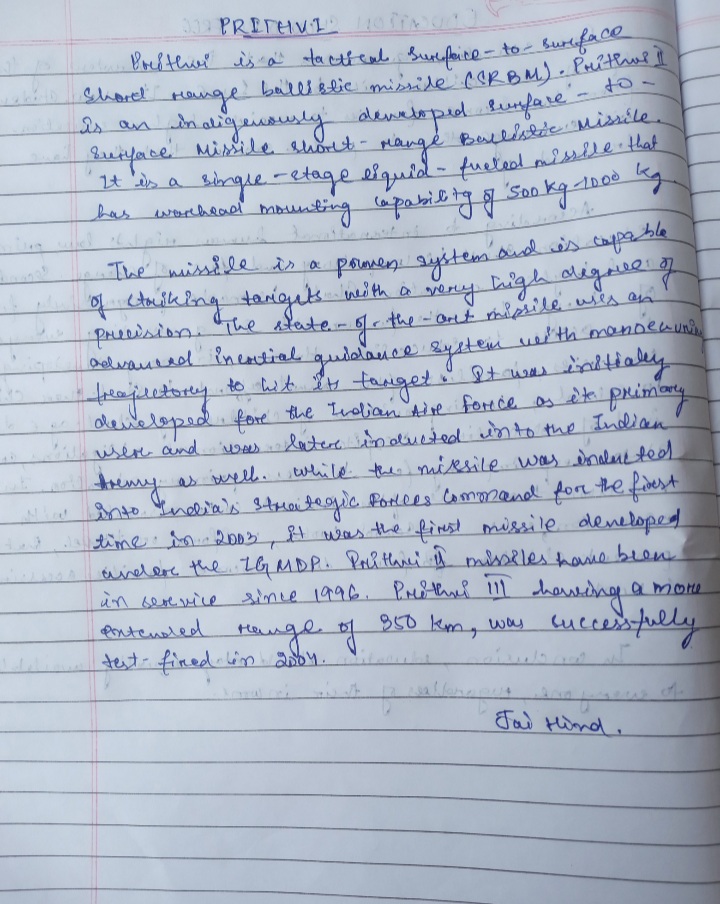 PRITHVI
Prithvi is a tactical surface-to-surface
Short range ballistic missile (SRBM). Prithvi II
is an indigenously developed surface-to-
surface Missile short-range Ballistic Missile.
It is a single-stage liquid-fueled missile that
has warhead mounting capability of 500 kg-1000 kg
The missile is a proven system and is capable
of striking targets with a very high degree of
precision. The state-of-the-art missile uses an
advanced inertial guidance system with manoeuvring
trajectory to hit its target. It was initialy
developed for the Indian Air Force as its primary
user and was later inducted into the Indian
Army as well. While the missile was inducted
into India's Strategic Forces Command for the first
time in 2003, it was the first missile developed
under the IGMDP. Prithvi II missiles have been
in service since 1996. Prithvi III having a more
extended range of 350 km, was successfully
test-fired in 2004.
Jai Hind.